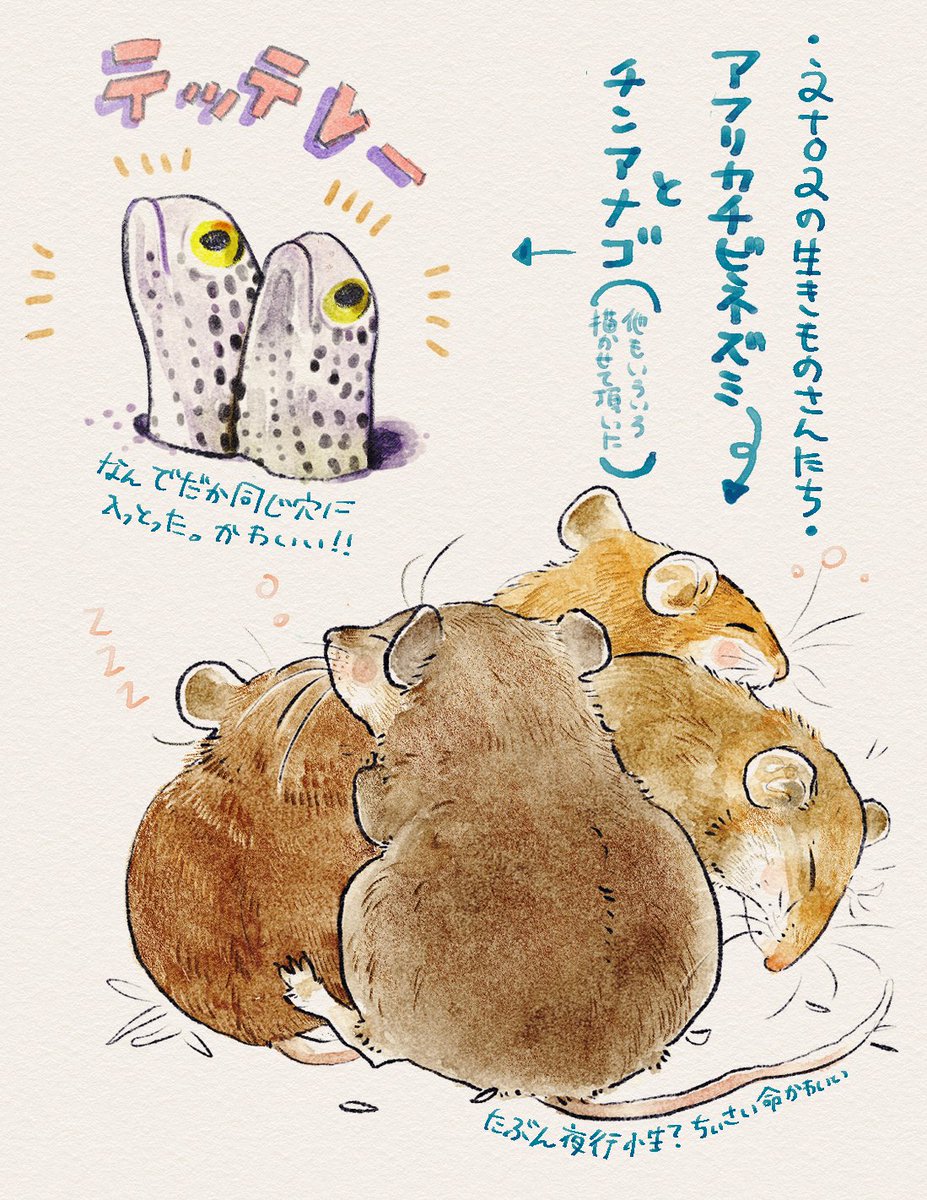 ・2+02の生きものさんたち・
アフリカチビネズミ
と
チンアナゴ
(他もいろいろ
描かせて頂いた)
テッテレー
なんでだか同じ穴に
入っとった。かわいい!!
zzz
たぶん夜行性?ちいさい命かわいい